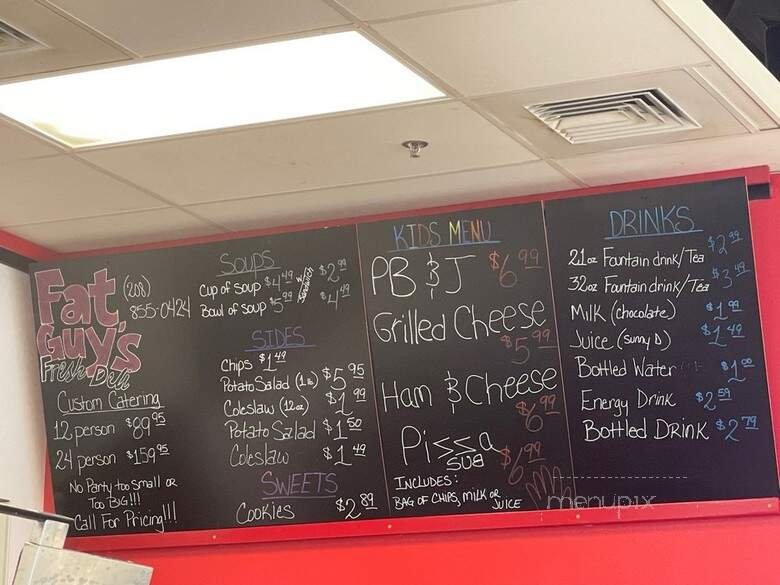 Fat
Guy's
Fresh Deli
(208)
855-0424
Custom Catering
12 person $89 95
24 person $159 95
No Party too small or
Too BIG!!!
Call For Pricing!!!
SOUPS
Cup of soup $4 49 $2 99
Bowl of soup $5 99 $4 49
SIDES
Chips $1 49
Potato Salad (1 lb) $5 95
Coleslaw (12oz) $1 99
Potato Salad $1 50
Coleslaw $1 49
SWEETS
Cookies $2 89
KIDS MENU
PB & J $6 99
Grilled Cheese
$5 99
Ham & Cheese
$6 99
Pizza
SUB $6 99
INCLUDES:
BAG OF CHIPS, MILK OR JUICE
DRINKS
21oz Fountain drink/Tea $2 99
32oz Fountain drink/Tea $3 49
Milk (chocolate) $1 99
Juice (sunny D) $1 49
Bottled Water $1 00
Energy Drink $2 59
Bottled Drink $2 79
menupix